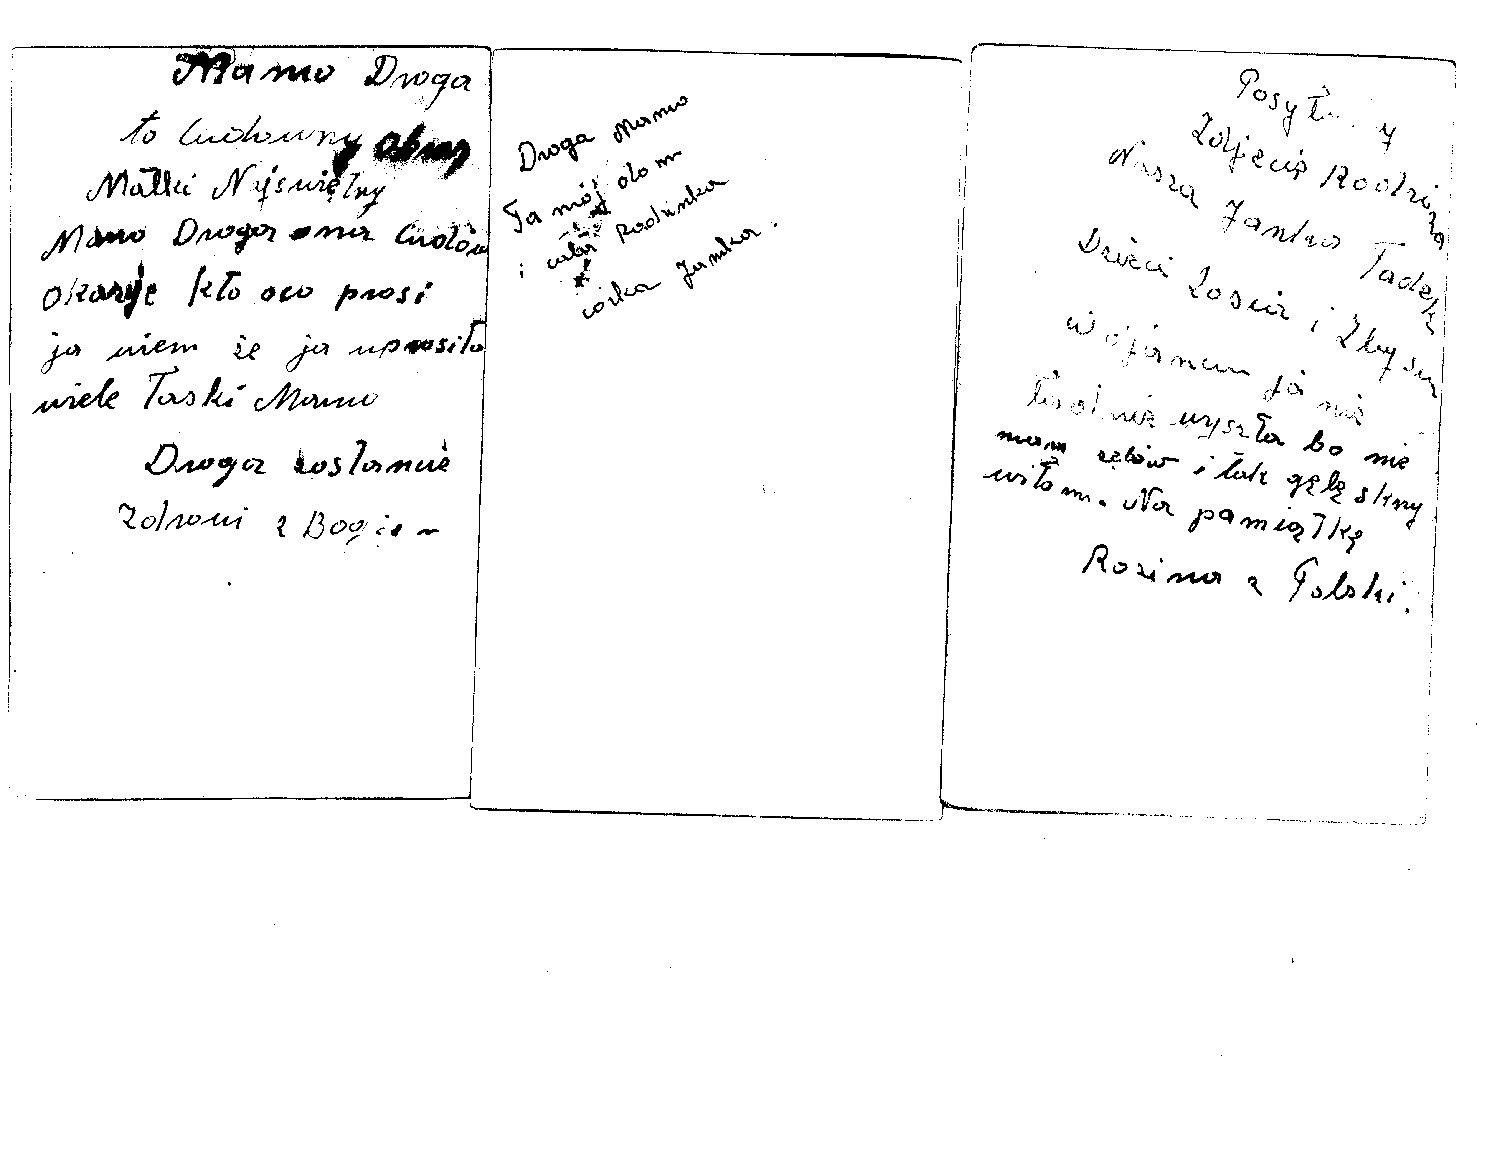 Mamo Droga
to Cudowny Obraz
Matki Najświętny
Mamo Droga ona Cudów
okazuje kto oco prosi
ja wiem że ja uprosiła
wiele Taski Mamo
Droga zostancie
Zdrowi z Bogiem
Droga Mamo
Ta mój dom
i cała Rodzinka
córka Janka.
Posyłamy
Zdjęcie Rodzina
Nasza Janka Tadek
Dzieci Zosia i Zbyszu
ja nie
ładnie wyszła bo nie
mam zębów i tak gębę skrzy
wiłam. Na pamiątkę
Rozina z Polski.